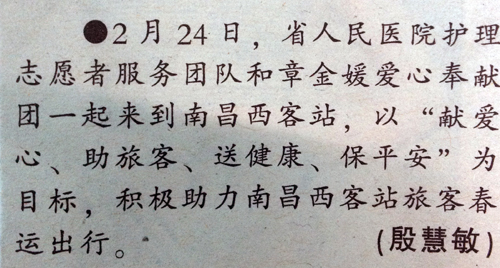 ●2月24日，省人民医院护理
志愿者服务团队和章金媛爱心奉献
团一起来到南昌西客站，以“献爱
心、助旅客、送健康、保平安”为
目标，积极助力南昌西客站旅客春
运出行。 (殷慧敏)